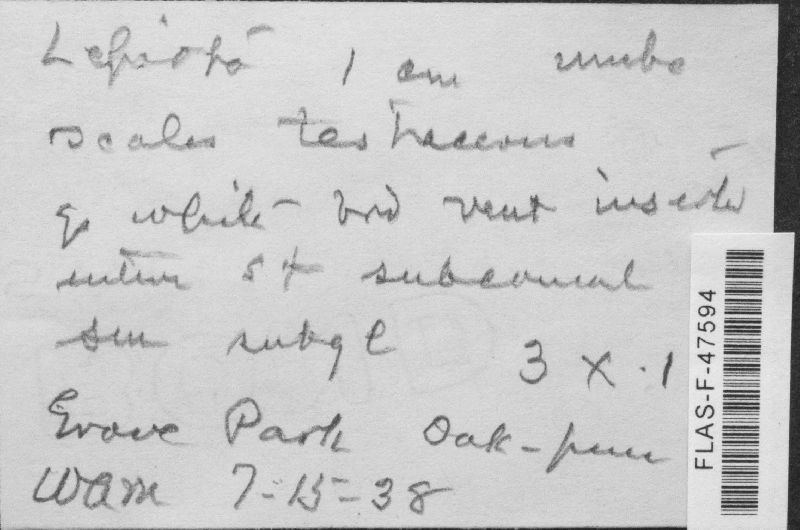 Lepiota 1 cm umbo
scales testaceous
g white brd vent inserted
entire st subconcol
sm subgl 3 X .1
Grove Park Oak-pine
WAM 7-15-38
FLAS-F-47594